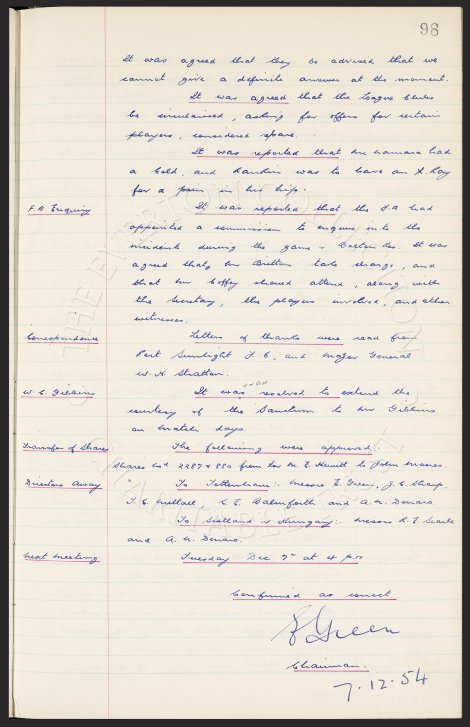 98
It was agreed that they be advised that we
cannot give a definite answer at the moment.
It was agreed that the League Clubs
be circularised, asking for offers for certain
players, considered spare.
It was reported that McNamara had
a cold, and Rankin was to have an X. Ray
for a pain in his hip.
F.A Enquiry
It was reported that the F.A had
appointed a commission to enquire into the
incident during the game v Bolton Res. It was
agreed that Mr Britton take charge, and
that Mr Coffey should attend, along with
the Secretary, the players involved, and other
witnesses.
Correspondence
Letters of thanks were read from
Port Sunlight F.C, and Major General
W. H. Stratton.
W. C. Gibbins
It was resolved to extend the
courtesy of the Sanctum to Mr Gibbins
on match days.
Transfer of Shares
The following were approved:-
Shares Nos 2287 & 880 from M. E. Hewitt to John Moores.
Directors Away
To Tottenham:- Messrs E. Green, J. C. Sharp,
F. E. Nuttall, C. E. Balmforth and A. W. Denaro.
To Scotland v Hungary:- Messrs R. E. Searle
and A. W. Denaro.
Next Meeting
Tuesday Dec 7th at 4 p.m
Confirmed as correct
E Green
Chairman.
7.12.54